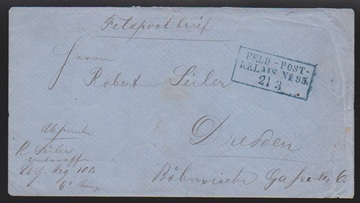 Feldpostbrief
Herrn
Robert Seiler
FELD-POST-
RELAIS No 85.
21 3
Dresden
Böhmische Gasse No 6.
Absender
R. Seiler